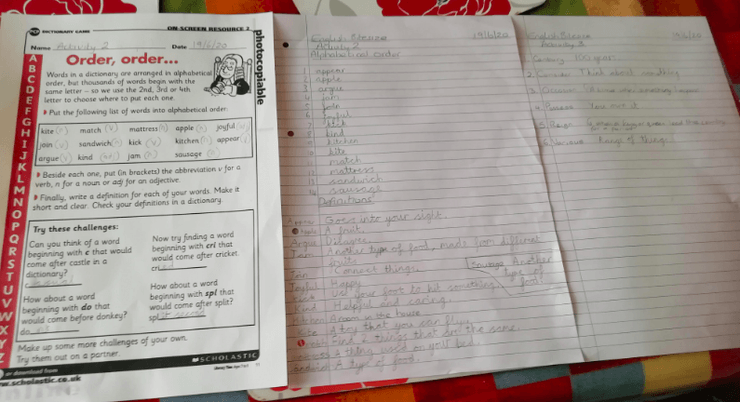 DICTIONARY GAME
ON-SCREEN RESOURCE 2
photocopiable
Name Activity 2 Date 19/6/20
Order, order...
Words in a dictionary are arranged in alphabetical
order, but thousands of words begin with the
same letter – so we use the 2nd, 3rd or 4th
letter to choose where to put each one.
Put the following list of words into alphabetical order:
kite match mattress apple joyful
join sandwich kick kitchen appear
argue kind jam sausage
Beside each one, put (in brackets) the abbreviation v for a
verb, n for a noun or adj for an adjective.
Finally, write a definition for each of your words. Make it
short and clear. Check your definitions in a dictionary.
Try these challenges:
Can you think of a word
beginning with c that would
come after castle in a
dictionary?
Now try finding a word
beginning with cri that
would come after cricket.
How about a word
beginning with do that
would come before donkey?
How about a word
beginning with spl that
would come after split?
Make up some more challenges of your own.
Try them out on a partner.
SCHOLASTIC
www.scholastic.co.uk
A
B
C
D
E
F
G
H
I
J
K
L
M
N
O
P
Q
R
S
T
U
V
W
X
Y
Z
English 19/6/20
Activity 2
Alphabetical order
appear
apple
argue
jam
join
joyful
kick
kind
kitchen
kite
match
mattress
sandwich
sausage
Definitions
Appear Goes into your sight.
Apple A fruit.
Argue Disagree
Jam Another type of food, made from different
fruits
Join Connect things.
Joyful Happy
Kick Use your foot to hit something
Kind Helpful and caring
Kitchen A room in the house
Kite A toy that you can fly
Match Find 2 things that are the same.
Mattress A thing used on your bed.
Sandwich A type of food.
Sausage Another
type of
food.
English
Activity 3
Century 100 years
2. Consider Think about something
4. Possess You own it